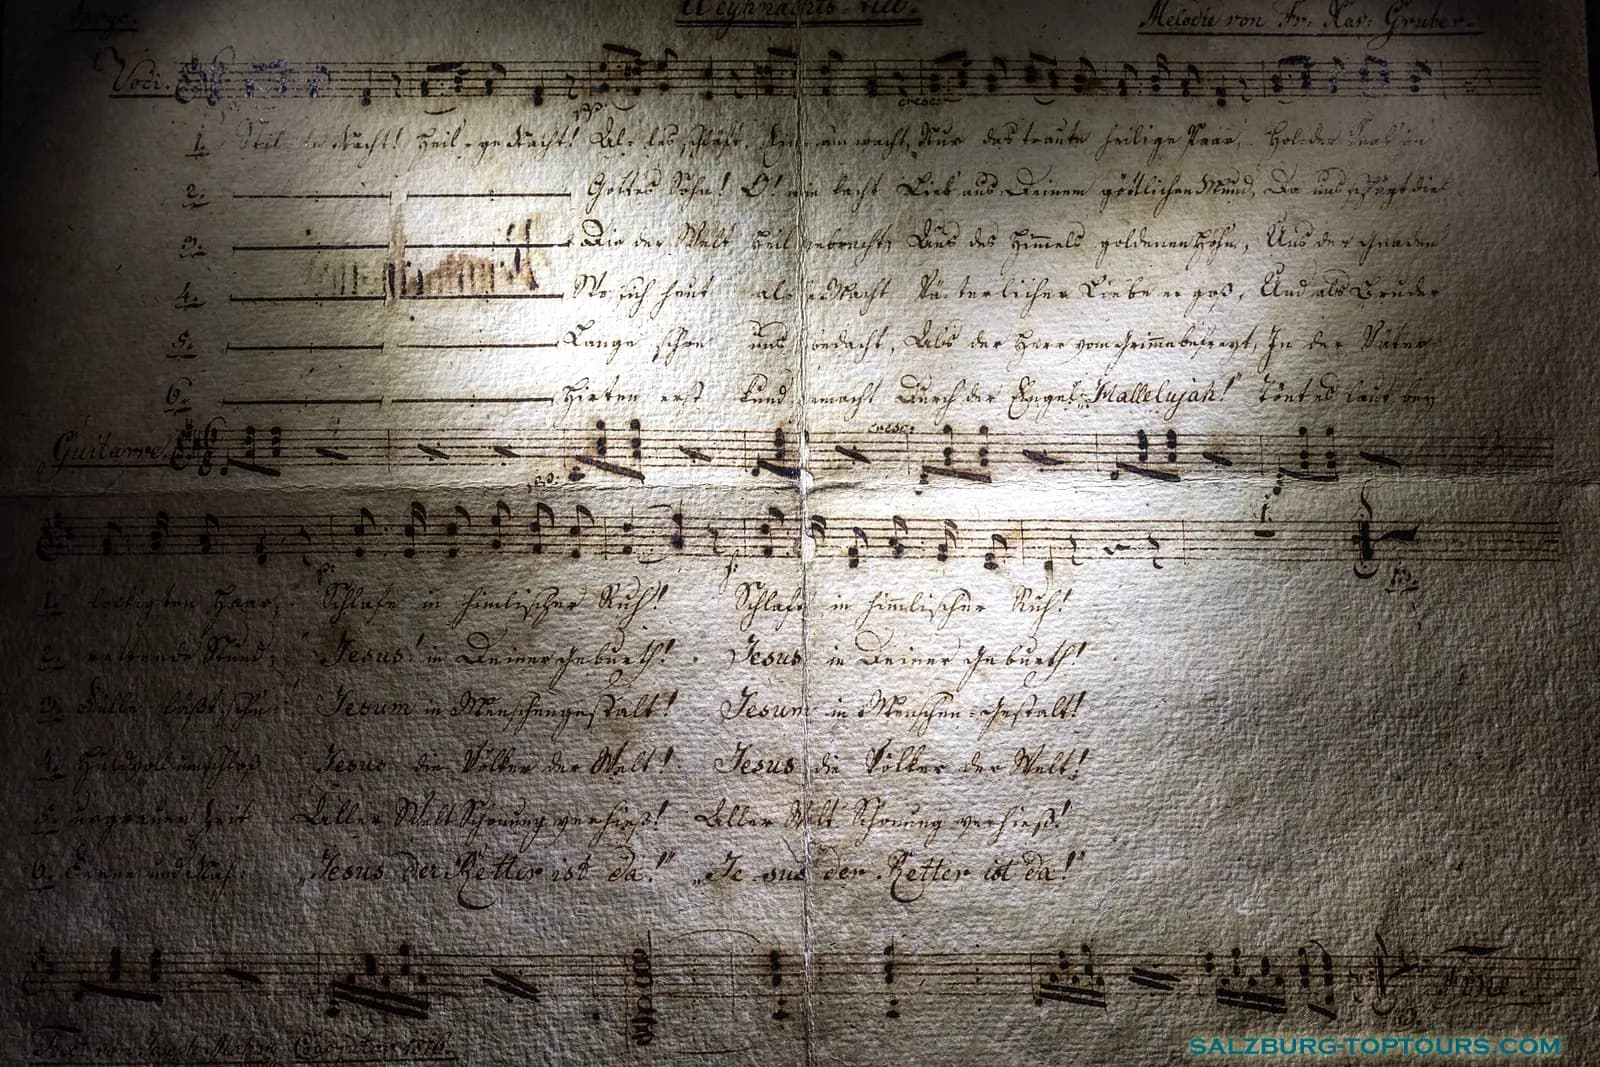 Weyhnachts-Lied.
Melodie von Fr: Xav: Gruber.
Voci.
cresc:
1. Stille Nacht! Heil-ge Nacht! Al-les schläft. Einsam wacht, Nur das traute heilige Paar, Hol-der Knab im
2. Gottes Sohn! O! wie lacht Lieb aus Deinem göttlichen Mund, Da uns schlägt die
3. Die der Welt Heil gebracht, Aus des Himmels goldenen Höhn, Uns der Gnaden
4. Wo sich heut alle Macht Väterlicher Liebe ergoß, Und als Bruder
5. Lange schon uns bedacht, Als der Herr vom Grimme befreyt, In der Väter
6. Hirten erst kund gemacht Durch der Engel „Hallelujah!" Tönt es laut bey
cresc:
Guitarre.
1. lockigten Haar, Schlafe in himlischer Ruh! Schlafe in himmlischer Ruh!
2. rettende Stund; Jesus! in Deiner Geburth! Jesus in Deiner Geburth!
3. Fülle läßt sehn Jesum in Menschengestalt! Jesum in Menschen-Gestalt!
4. Huldvoll umschloß Jesus die Völker der Welt! Jesus die Völker der Welt!
5. urgrauen Zeit Aller Welt Schonung verhieß! Aller Welt Schonung verhieß!
6. Ferne und Nah: „Jesus der Retter ist da!" „Jesus der Retter ist da!"
Fine.
Text von Joseph Mohr Coadjutor 1816.
SALZBURG-TOPTOURS.COM